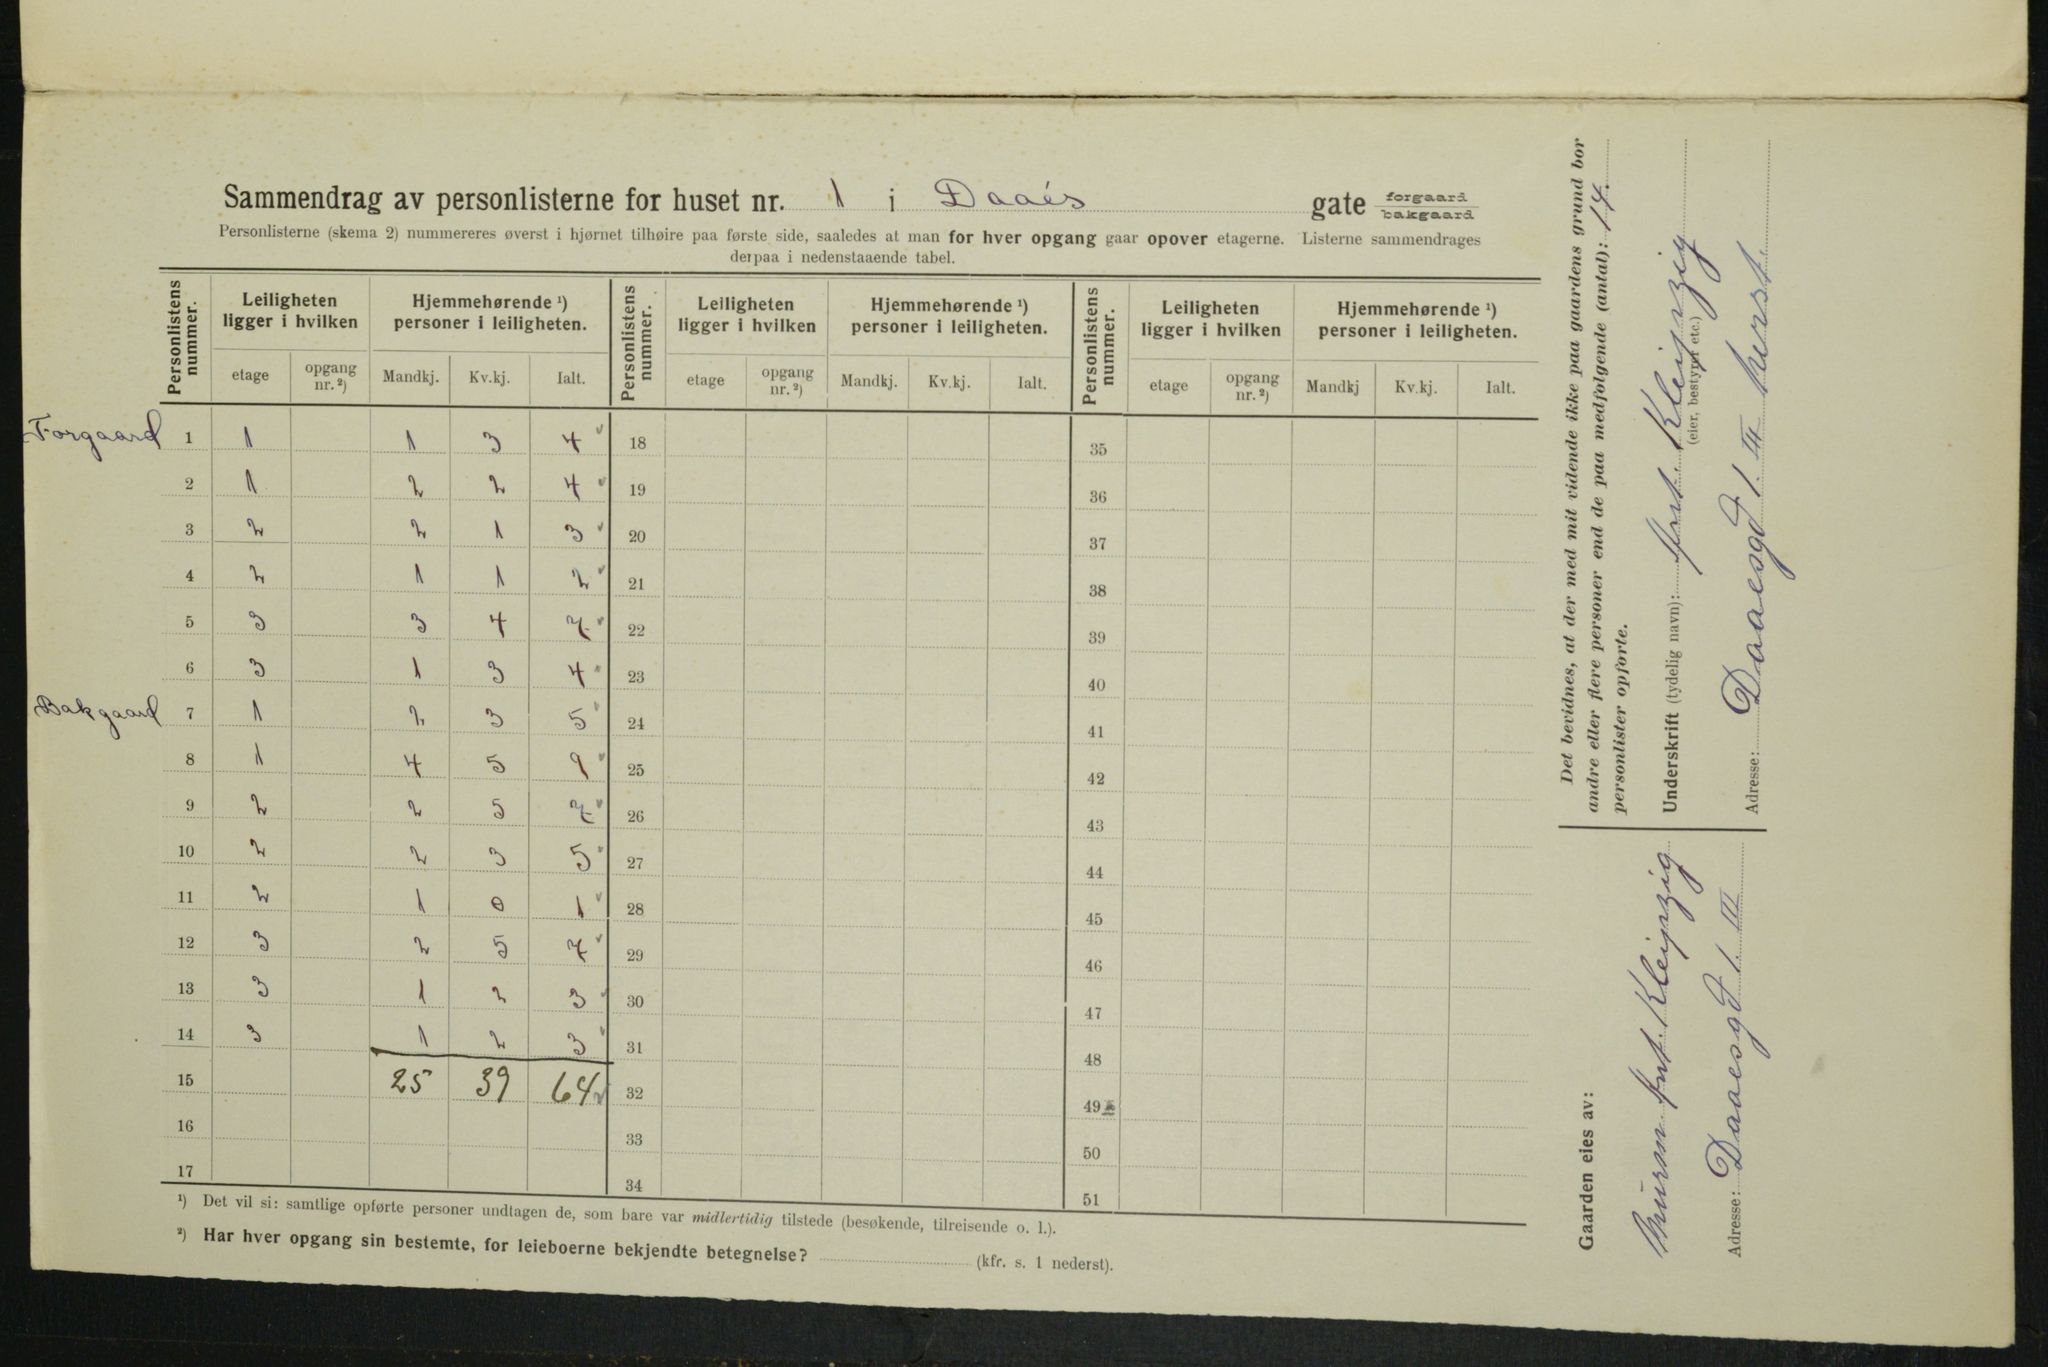 Sammendrag av personlisterne for huset nr. 1 i Daaés gate forgaard bakgaard
Personlisterne (skema 2) nummereres øverst i hjørnet tilhøire paa første side, saaledes at man for hver opgang gaar opover etagerne. Listerne sammendrages
derpaa i nedenstaaende tabel.
Personlistens nummer. Leiligheten ligger i hvilken Hjemmehørende ¹) personer i leiligheten. Personlistens nummer. Leiligheten ligger i hvilken Hjemmehørende ¹) personer i leiligheten. Personlistens nummer. Leiligheten ligger i hvilken Hjemmehørende ¹) personer i leiligheten.
etage opgang nr. ²) Mandkj. Kv.kj. Ialt. etage opgang nr. ²) Mandkj. Kv.kj. Ialt. etage opgang nr. ²) Mandkj Kv.kj. Ialt.
Forgaard 1 1 1 3 4 18 35
2 1 2 2 4 19 36
3 2 2 1 3 20 37
4 2 1 1 2 21 38
5 3 3 4 7 22 39
6 3 1 3 4 23 40
Bakgaard 7 1 2 3 5 24 41
8 1 4 5 9 25 42
9 2 2 5 7 26 43
10 2 2 3 5 27 44
11 2 1 0 1 28 45
12 3 2 5 7 29 46
13 3 1 2 3 30 47
14 3 1 2 3 31 48
15 25 39 64 32 49
16 33 50
17 34 51
¹) Det vil si: samtlige opførte personer undtagen de, som bare var midlertidig tilstede (besøkende, tilreisende o. l.).
²) Har hver opgang sin bestemte, for leieboerne bekjendte betegnelse? (kfr. s. 1 nederst).
Det bevidnes, at der med mit vidende ikke paa gaardens grund bor
andre eller flere personer end de paa medfolgende (antal): 14.
personlister opforte.
Underskrift (tydelig navn): Ant. Kleipzig
(eier, bestyrer etc.)
Adresse: Daaesgd 1. III
Gaarden eies av:
Ant. Kleipzig
Adresse: Daaesgd 1. III